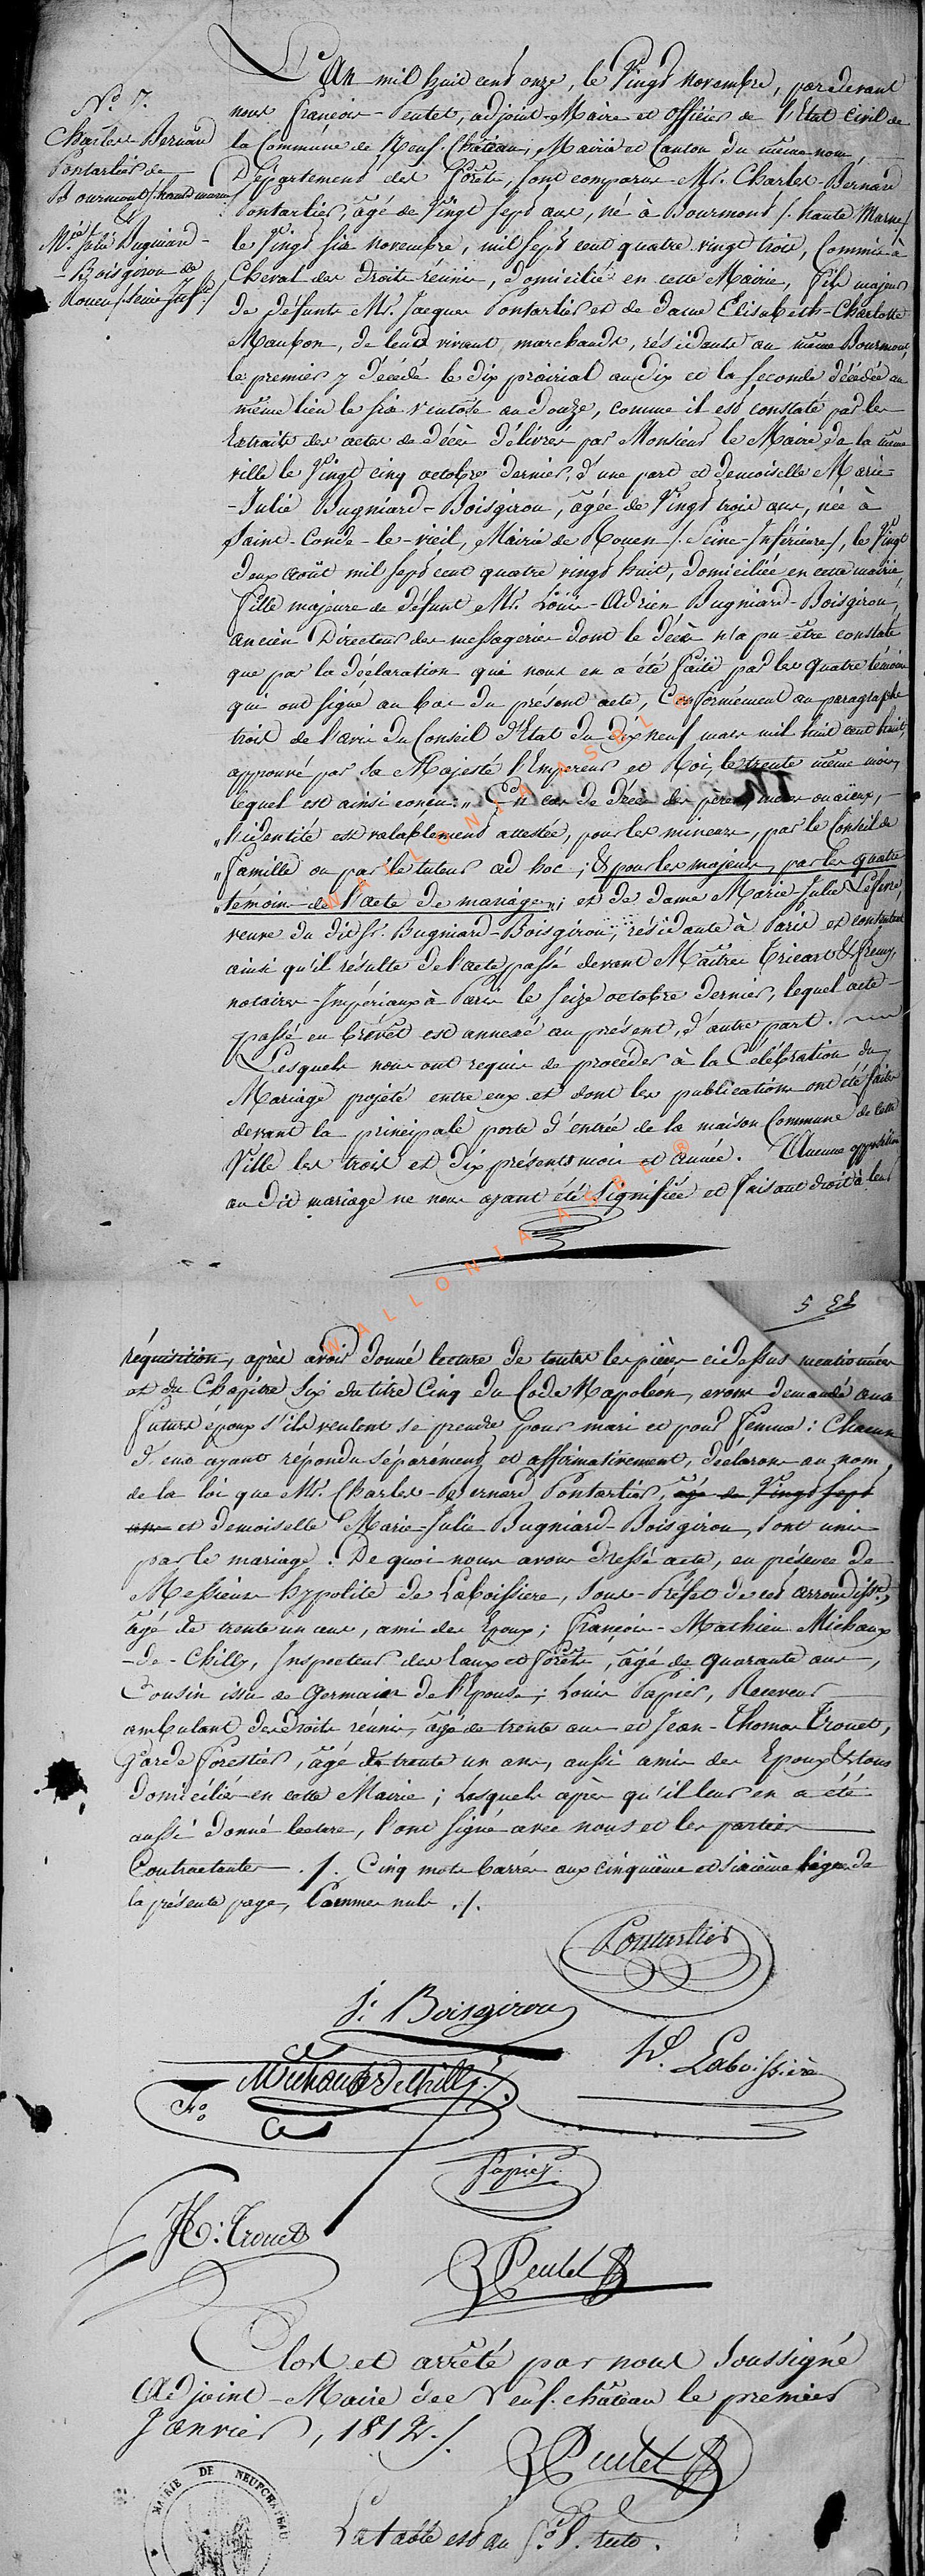 L'An mil huit cent onze, le Vingt novembre, pardevant
nous François-Peutet, adjoint-Maire et officier de l'Etat Civil de
la Commune de Neuf-Château, Mairie et Canton du même nom,
Département des Forêts, sont comparus Mr. Charles-Bernard
Pontarlier, âgé de Vingt sept ans, né à Bourmont /. haute Marne/
le Vingt six novembre, mil sept cent quatre vingt trois, Commis à
Cheval des droits réunis, domicilié en cette Mairie, fils majeur
de défunts Mr. Jacques Pontarlier et de dame Elisabeth-Charlotte
Maubon, de leur vivant marchands, résidants au même Bourmont,
le premier y décédé le dix prairial an dix et la seconde décédée au
même lieu le six ventôse an douze, comme il est constaté par les
Extraits des actes de décès délivrés par Monsieur le Maire de la même
ville le Vingt cinq octobre dernier, d'une part et demoiselle Marie-
-Julie Bugniard-Boisgirou, âgée de Vingt trois ans, née à
Saint-Cande-le-vieil, Mairie de Rouen /. Seine-Inférieure/, le Vingt
deux Août mil sept cent quatre vingt huit, domiciliée en cette mairie,
fille majeure de défunt Mr. Louis-Adrien Bugniard-Boisgirou,
ancien Directeur des messageries dont le décès n'a pu être constaté
que par la déclaration qui nous en a été faite par les quatre témoins
qui ont signé au bas du présent acte, Conformément au paragraphe
trois de l'avis du Conseil d'Etat du dix neuf mars mil huit cent huit,
approuvé par Sa Majesté l'Empereur et Roi, le trente même mois,
lequel est ainsi conçu: „ En cas de décès des pères, mères ou aïeux, -
„ l'identité est valablement attestée, pour les mineurs, par le Conseil de
„ famille ou par le tuteur ad hoc ; & pour les majeurs, par les quatre
„ témoins de l'acte de mariage„; et de dame Marie Julie Lefevre,
veuve du dit Sr. Bugniard-Boisgirou, résidante à Paris et consentant
ainsi qu'il résulte de l'acte passé devant Maîtres Tricart & fremy,
notaires-Impériaux à Paris le seize octobre dernier, lequel acte-
passé en brévet est annexé au présent, d'autre part.
Lesquels nous ont requis de procéder à la Célébration du
Mariage projeté entre eux et dont les publications ont été faites
devant la principale porte d'entrée de la maison Commune de cette
Ville les trois et dix présents mois et année. Aucune opposition
au dit mariage ne nous ayant été signifiée et faisant droit à leur
No. 7.
Charles Bernard
Pontarlier de
Bourmont /. haute marne
&
Mie. Julie Bugniard-
-Boisgirou de
Rouen /. Seine Infre./
réquisition, après avoir donné lecture de toutes les pièces ci dessus mentionnées
et du Chapitre Six du titre Cinq du Code Napoléon, avons demandé aux
futurs époux s'ils veulent se prendre pour mari et pour femme: Chacun
d'eux ayant répondu séparément et affirmativement, déclarons au nom
de la loi que Mr. Charles-Bernard Pontarlier, âgé de Vingt sept
ans et demoiselle Marie-Julie Bugniard-Boisgirou, sont unis
par le mariage. De quoi nous avons dressé acte, en présence de
Messieurs hypolite de Laboissiere, Sous-Préfet de cet arrondisst.,
âgé de trente un ans, ami des Epoux; François-Mathieu Michaux
-de-Chilly, Inspecteur des Eaux et forêts, âgé de quarante ans,
Cousin issu de Germain de l'Epouse; Louis Papier, Receveur
ambulant des droits réunis, âgé de trente ans et Jean-Thomas Trouet,
Garde Forestier, âgé de trente un ans, aussi amis des Epoux & tous
domiciliés en cette Mairie; Lesquels après qu'il leur en a été
aussi donné lecture, l'ont signé avec nous et les parties
Contractantes ./. Cinq mots barrés aux cinquième et sixième lignes de
la présente page, Comme nuls ./.
Pontarlier
J. Boisgirou
H. Laboissière
Michaux de Chilly
Papier
Trouet
Peutet
Clos et arrêté par nous Soussigné
Adjoint-Maire de Neuf-château le premier
Janvier, 1812./.
Peutet
MAIRIE DE NEUFCHATEAU
La table est au
WALLONIA ASBL ®